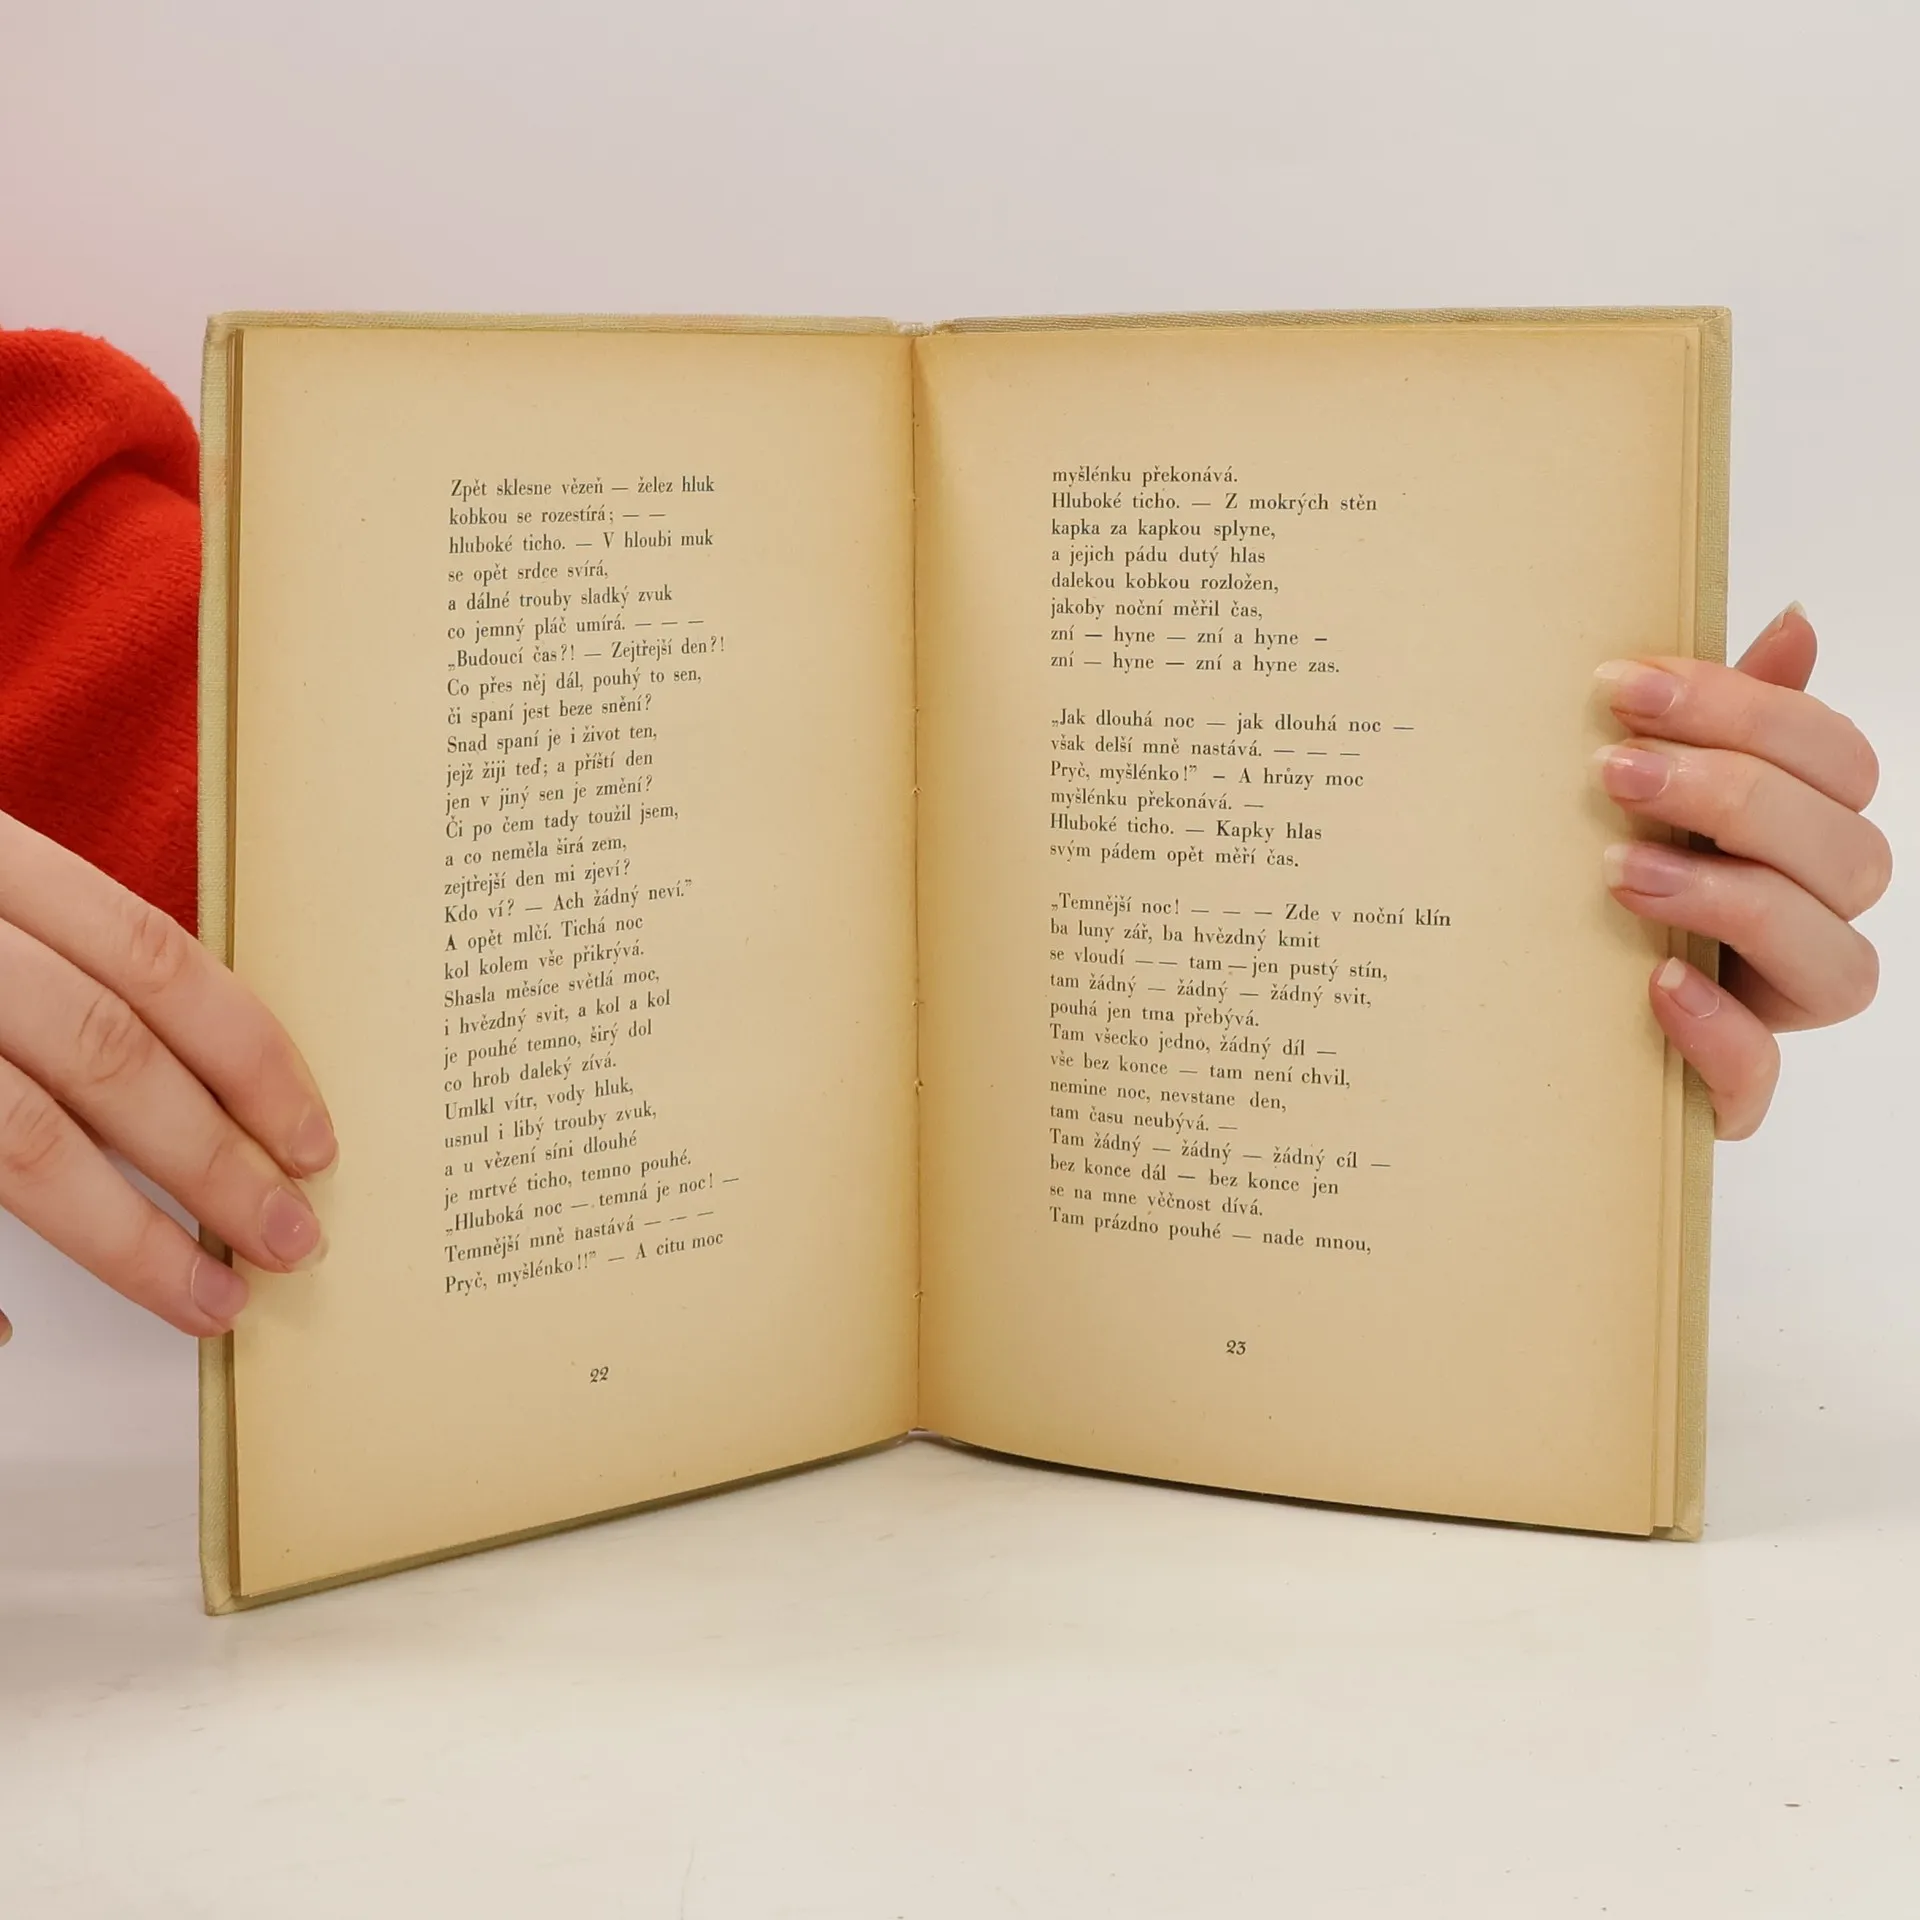 Zpět sklesne vězeň — želez hluk
kobkou se rozestírá; — —
hluboké ticho. — V hloubi muk
se opět srdce svírá,
a dálné trouby sladký zvuk
co jemný pláč umírá. — — —
„Budoucí čas?! — Zejtřejší den?!
Co přes něj dál, pouhý to sen,
či spaní jest beze snění?
Snad spaní je i život ten,
jejž žiji teď; a příští den
jen v jiný sen je změní?
Či po čem tady toužil jsem,
a co neměla širá zem,
zejtřejší den mi zjeví?
Kdo ví? — Ach žádný neví.”
A opět mlčí. Tichá noc
kol kolem vše přikrývá.
Shasla měsíce světlá moc,
i hvězdný svit, a kol a kol
je pouhé temno, širý dol
co hrob daleký zívá.
Umlkl vítr, vody hluk,
usnul i libý trouby zvuk,
a u vězení síni dlouhé
je mrtvé ticho, temno pouhé.
„Hluboká noc — temná je noc! —
Temnější mně nastává — — —
Pryč, myšlénko!!” — A citu moc
22
myšlénku překonává.
Hluboké ticho. — Z mokrých stěn
kapka za kapkou splyne,
a jejich pádu dutý hlas
dalekou kobkou rozložen,
jakoby noční měřil čas,
zní — hyne — zní a hyne —
zní — hyne — zní a hyne zas.
„Jak dlouhá noc — jak dlouhá noc —
však delší mně nastává. — — —
Pryč, myšlénko!” — A hrůzy moc
myšlénku překonává. —
Hluboké ticho. — Kapky hlas
svým pádem opět měří čas.
„Temnější noc! — — — Zde v noční klín
ba luny zář, ba hvězdný kmit
se vloudí — — tam — jen pustý stín,
tam žádný — žádný — žádný svit,
pouhá jen tma přebývá.
Tam všecko jedno, žádný díl —
vše bez konce — tam není chvil,
nemine noc, nevstane den,
tam času neubývá. —
Tam žádný — žádný — žádný cíl —
bez konce dál — bez konce jen
se na mne věčnost dívá.
Tam prázdno pouhé — nade mnou,
23